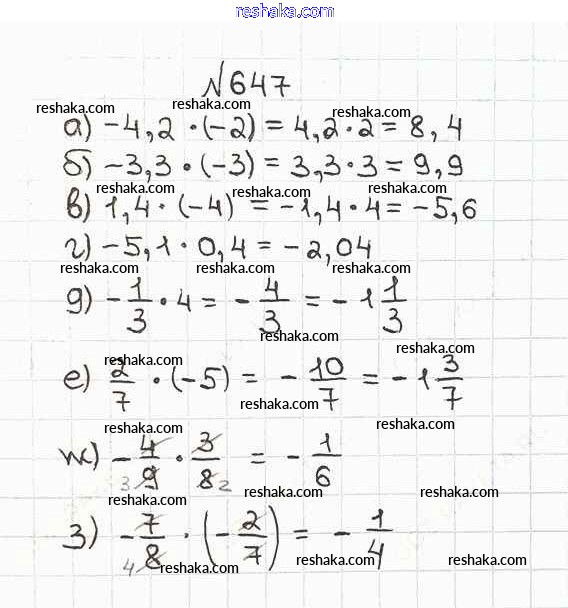 reshaka.com
№647
reshaka.com
а) -4,2 · (-2) = 4,2 · 2 = 8,4
reshaka.com reshaka.com
б) -3,3 · (-3) = 3,3 · 3 = 9,9
reshaka.com reshaka.com reshaka.com
в) 1,4 · (-4) = -1,4 · 4 = -5,6
г) -5,1 · 0,4 = -2,04
reshaka.com reshaka.com reshaka.com
д) -1/3 · 4 = -4/3 = -1 1/3
reshaka.com
reshaka.com reshaka.com
е) 2/7 · (-5) = -10/7 = -1 3/7
reshaka.com
reshaka.com reshaka.com
ж) -4/9 · 3/8 = -1/6
3 2
reshaka.com reshaka.com reshaka.com
з) -7/8 · (-2/7) = -1/4
4
reshaka.com reshaka.com reshaka.com